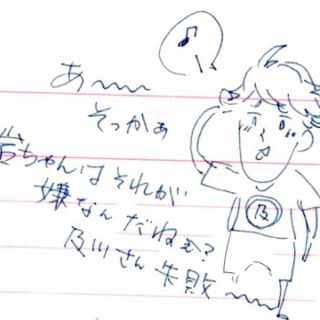 あ～～
そっかぁ
岩ちゃんはそれが
嫌なんだねぇ?
及川さん失敗～～
及